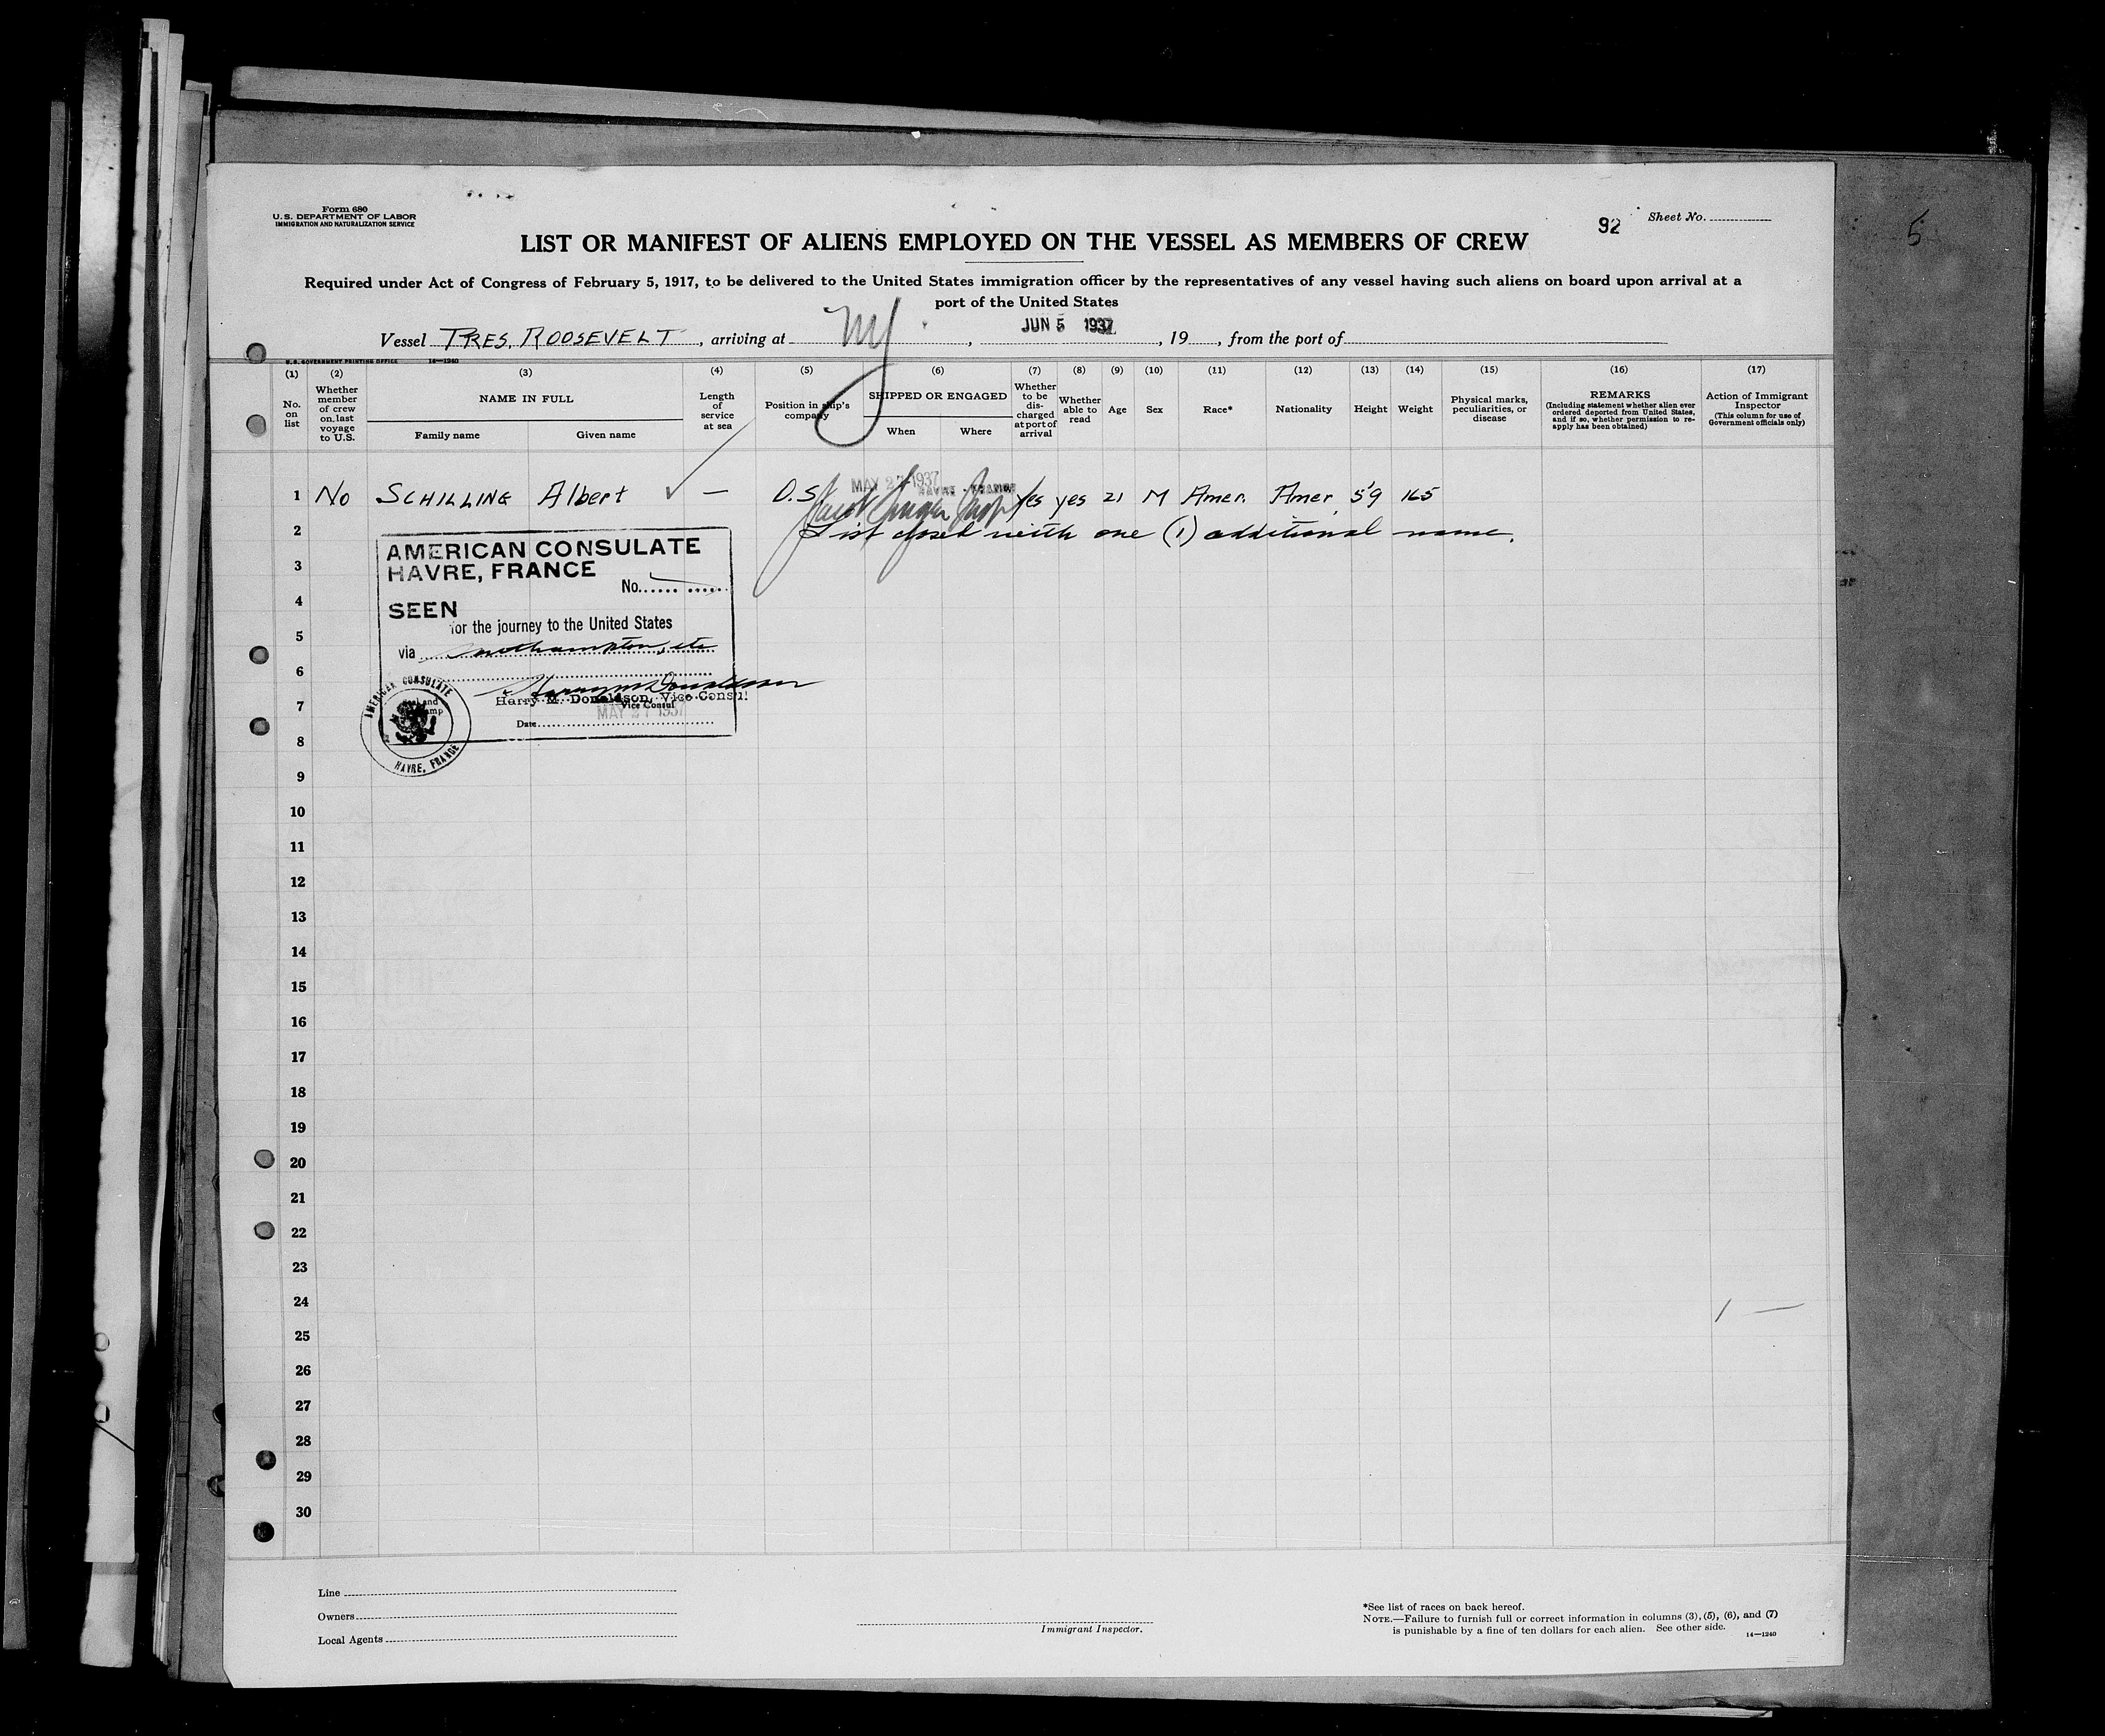 Form 680
U. S. DEPARTMENT OF LABOR
IMMIGRATION AND NATURALIZATION SERVICE
92 Sheet No.
5
LIST OR MANIFEST OF ALIENS EMPLOYED ON THE VESSEL AS MEMBERS OF CREW
Required under Act of Congress of February 5, 1917, to be delivered to the United States immigration officer by the representatives of any vessel having such aliens on board upon arrival at a
port of the United States
Vessel PRES. ROOSEVELT, arriving at NY, JUN 5 1937, 19, from the port of
U. S. GOVERNMENT PRINTING OFFICE 14—1240
(1) (2) (3) (4) (5) (6) (7) (8) (9) (10) (11) (12) (13) (14) (15) (16) (17)
No. on list
Whether member of crew on last voyage to U.S.
NAME IN FULL
Family name Given name
Length of service at sea
Position in ship's company
SHIPPED OR ENGAGED
When Where
Whether to be discharged at port of arrival
Whether able to read
Age
Sex
Race*
Nationality
Height
Weight
Physical marks, peculiarities, or disease
REMARKS
(Including statement whether alien ever ordered deported from United States, and if so, whether permission to reapply has been obtained)
Action of Immigrant Inspector
(This column for use of Government officials only)
MAY 27 1937 HAVRE - FRANCE
1 No SCHILLING Albert — O.S. Yes yes 21 M Amer. Amer. 5'9 165
2 List closed with one (1) additional name.
3
4
5
6
7
8
9
10
11
12
13
14
15
16
17
18
19
20
21
22
23
24 1 —
25
26
27
28
29
30
AMERICAN CONSULATE
HAVRE, FRANCE
No.
SEEN
for the journey to the United States
via Southampton, etc
Harry M. Donaldson
Harry M. Donaldson, Vice Consul
Vice Consul
Date MAY 27 1937
AMERICAN CONSULATE
HAVRE, FRANCE
Line
Owners
Local Agents
Immigrant Inspector.
*See list of races on back hereof.
NOTE.—Failure to furnish full or correct information in columns (3), (5), (6), and (7)
is punishable by a fine of ten dollars for each alien. See other side.
14—1240